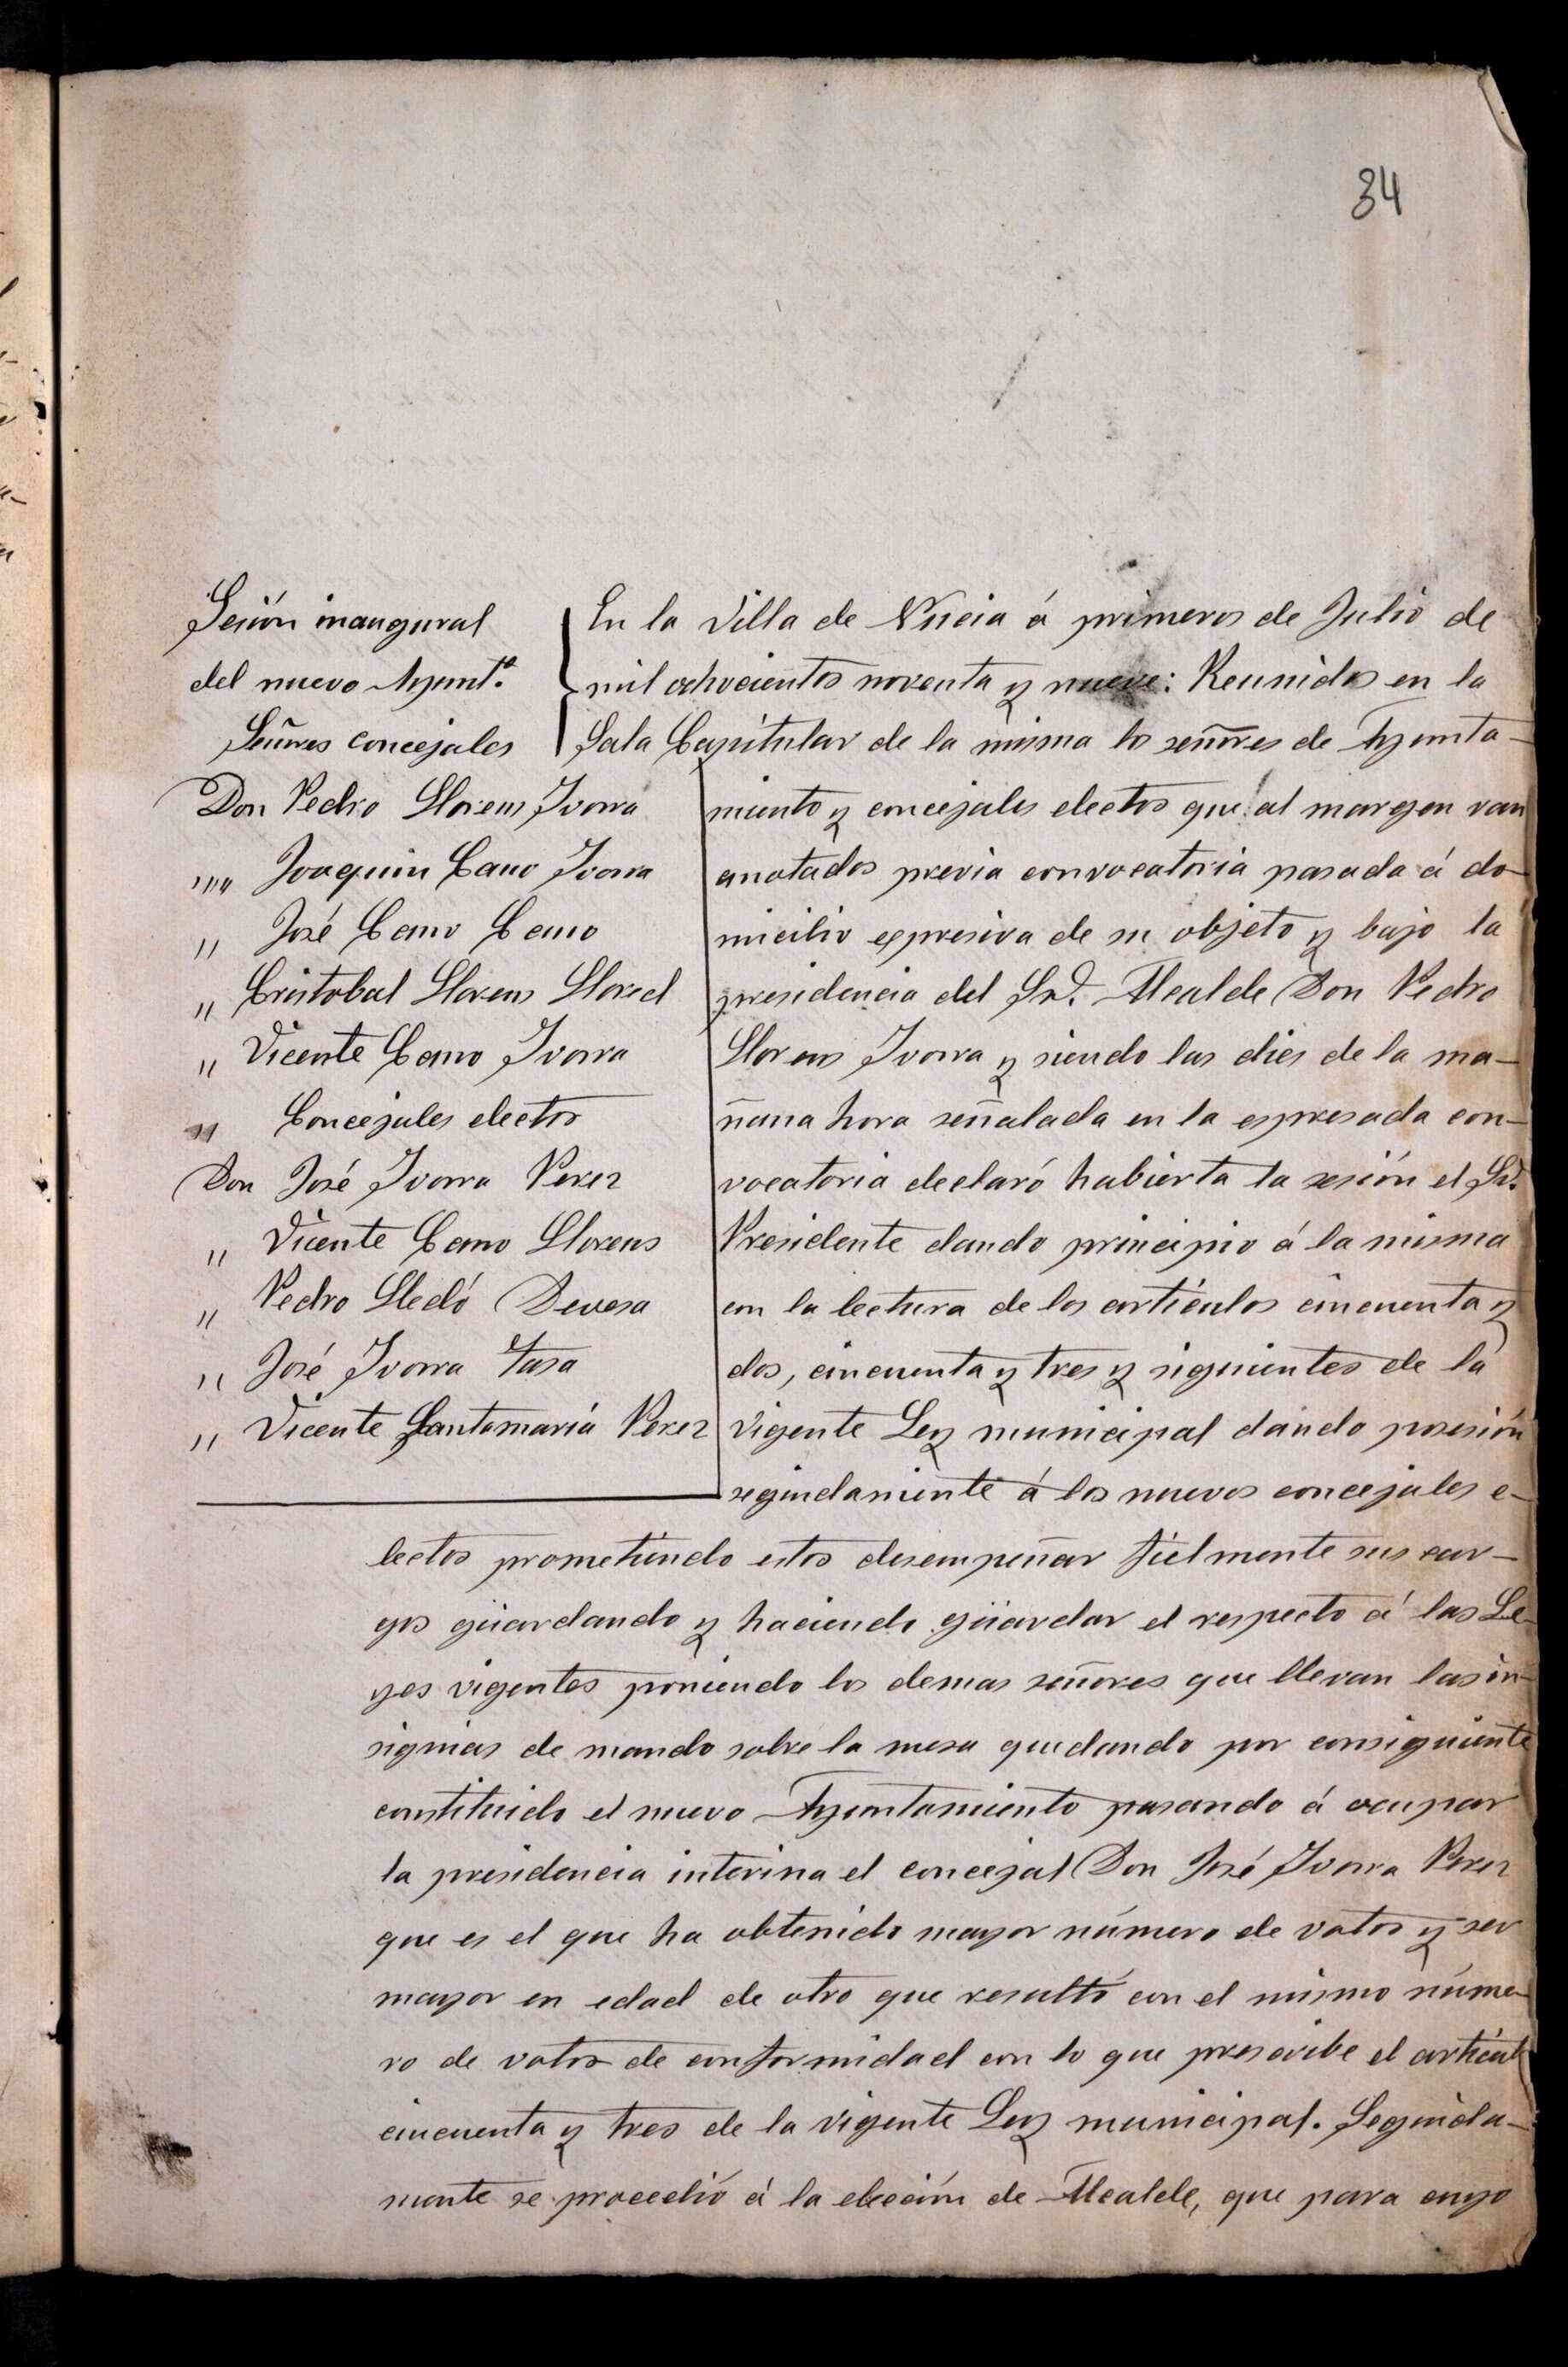 34
Sesión inaugural
del nuevo Ayuntº.
Señores concejales
Don Pedro Llorens Ivorra
"" Joaquin Cano Ivorra
" José Cano Cano
" Cristobal Llorens Llored
" Vicente Cano Ivorra
" Concejales electos
Don José Ivorra Perez
" Vicente Cano Llorens
" Pedro Lledó Devesa
" José Ivorra Tasa
" Vicente Santamaria Perez
En la Villa de Nucia á primeros de Julio de
mil ochocientos noventa y nueve: Reunidos en la
Sala Capitular de la misma los señores de Ayunta-
miento y concejales electos que al margen van
anotados previa convocatoria pasada á do-
micilio espresiva de su objeto y bajo la
presidencia del Sr. Alcalde Don Pedro
Llorens Ivorra y siendo las dies de la ma-
ñana hora señalada en la espresada con-
vocatoria declaró habierta la sesión el Sr.
Presidente dando principio á la misma
con la lectura de los artículos cincuenta y
dos, cincuenta y tres y siguientes de la
vigente Ley municipal dando posesión
seguidamente á los nuevos concejales e-
lectos prometiendo estos desempeñar fielmente sus car-
gos guardando y haciendo guardar el respecto á las Le-
yes vigentes poniendo los demas señores que llevan las in-
signias de mando sobre la mesa quedando por consiguiente
constituido el nuevo Ayuntamiento pasando á ocupar
la presidencia interina el concejal Don José Ivorra Perez
que es el que ha obtenido mayor número de votos y ser
mayor en edad de otro que resultó con el mismo núme-
ro de votos de conformidad con lo que prescribe el articul
cincuenta y tres de la vigente Ley municipal. Seguida-
mente se procedió á la elección de Alcalde, que para cuyo